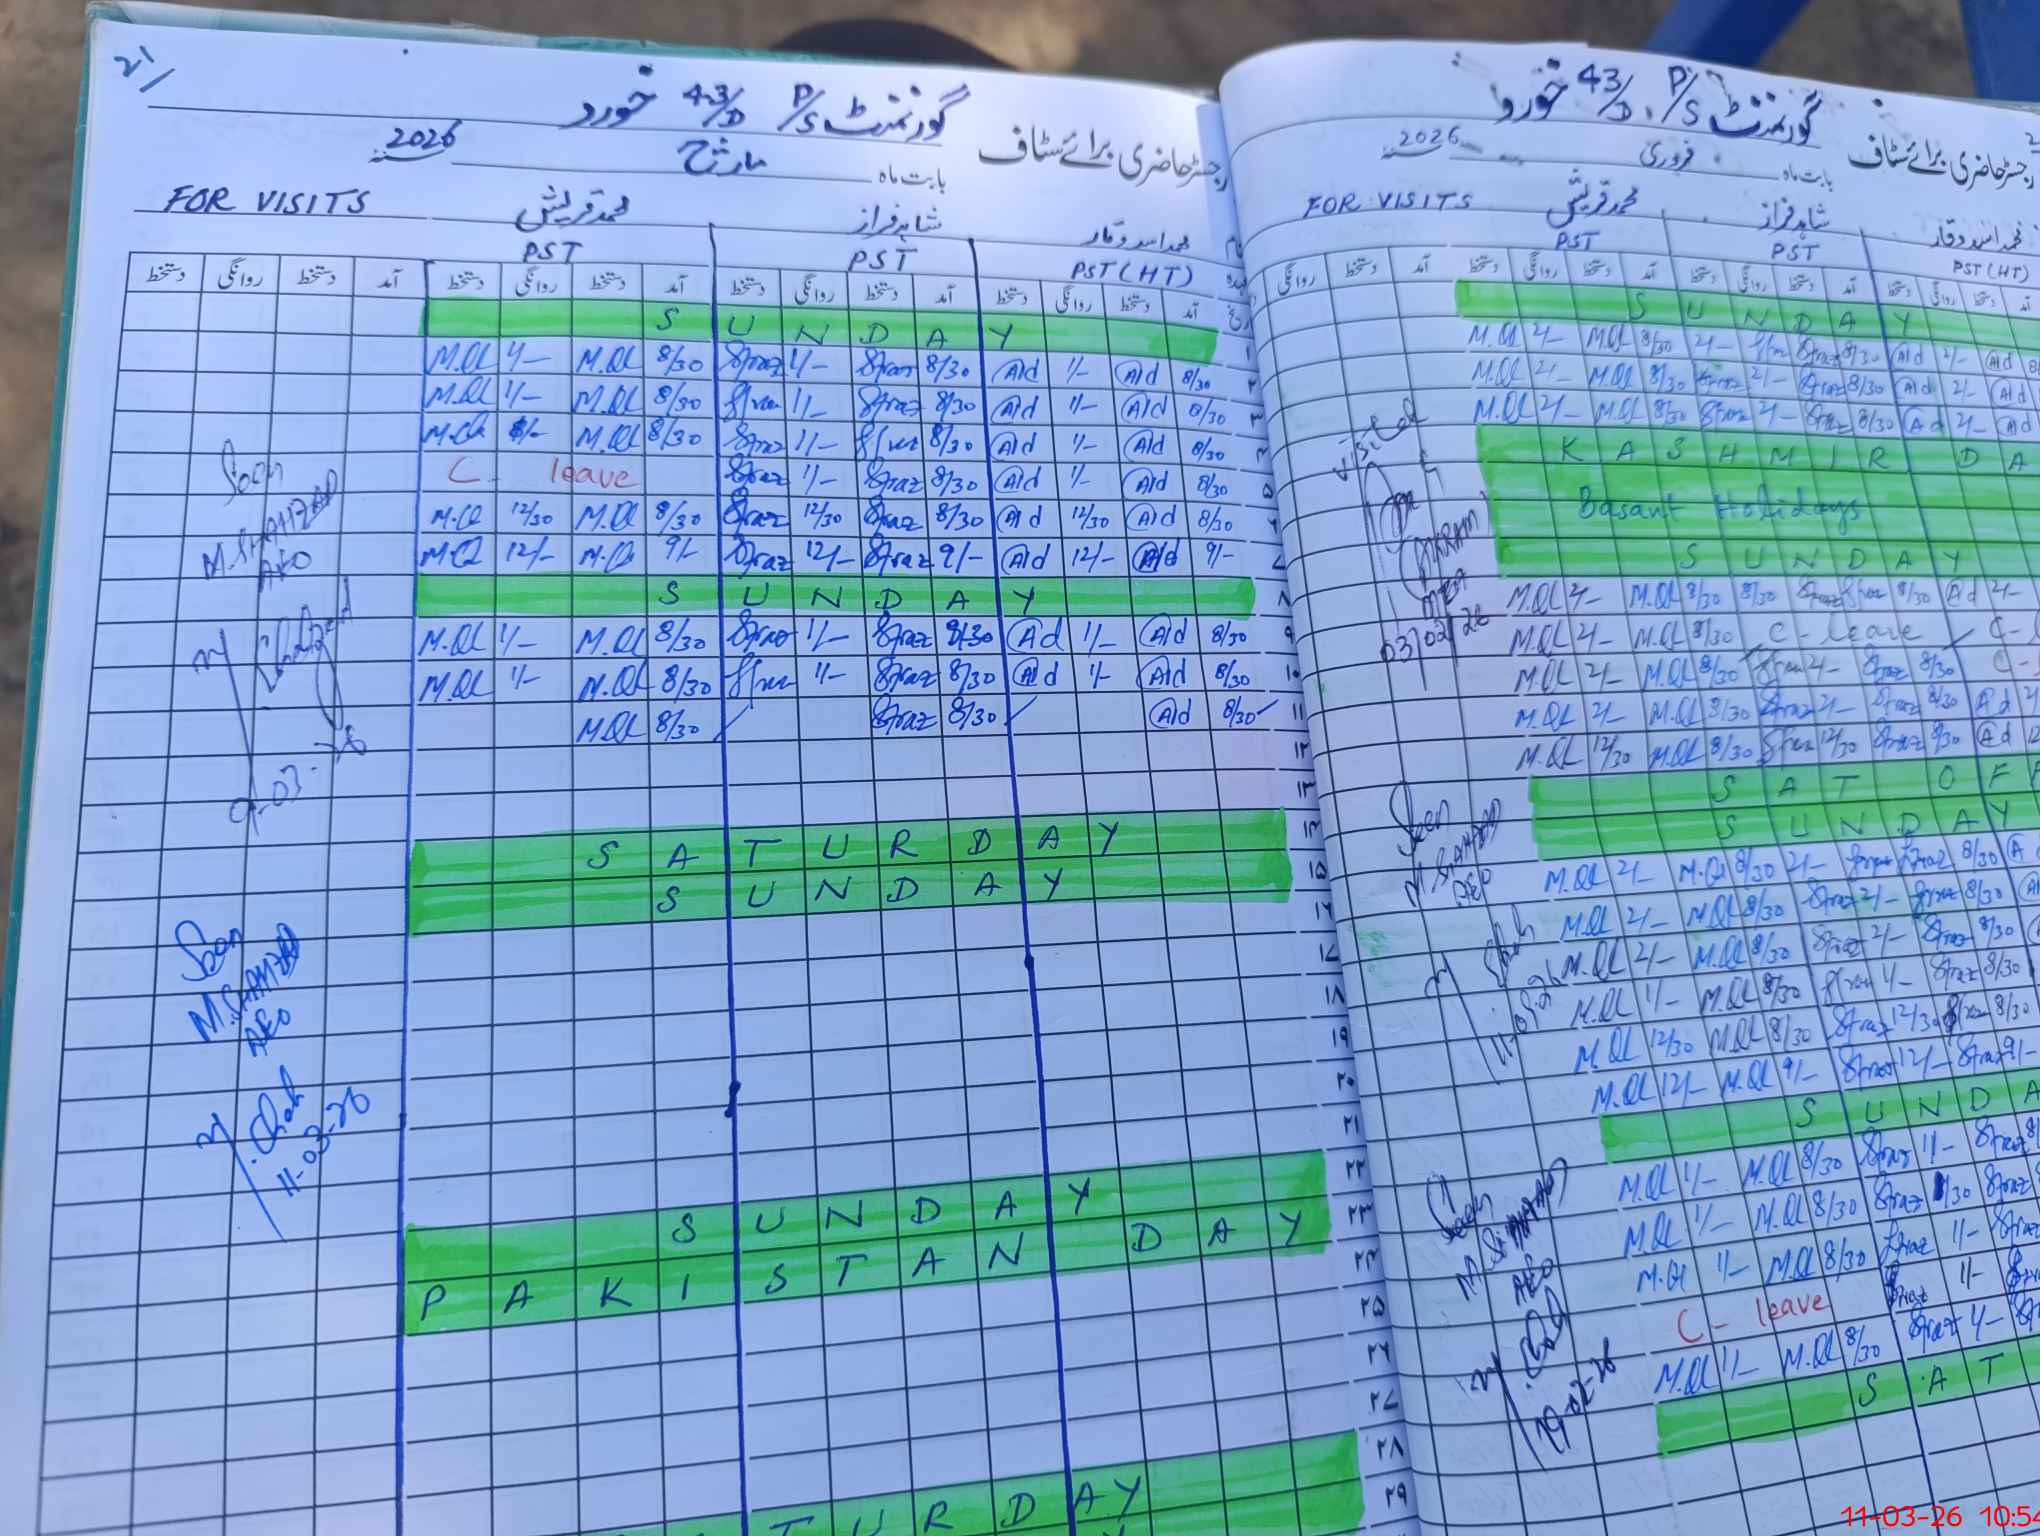 21/
گورنمنٹ P/S 43/D خورد
رجسٹر حاضری برائے سٹاف
بابت ماہ مارچ 2026
FOR VISITS محمد قریش شاہد فراز محمد اسد وقار
PST PST PST (HT)
دستخط روانگی دستخط آمد دستخط روانگی دستخط آمد دستخط روانگی دستخط آمد دستخط روانگی دستخط آمد
SUNDAY ۱
M.Ql 1/- M.Ql 8/30 Sfraz 1/- Sfraz 8/30 Ald 1/- Ald 8/30 ۲
M.Ql 1/- M.Ql 8/30 1/- Sfraz 8/30 Ald 1/- Ald 8/30 ۳
M.Ql M.Ql 8/30 Sfraz 1/- 8/30 Ald 1/- Ald 8/30
C- leave Sfraz 1/- Sfraz 8/30 Ald 1/- Ald 8/30 ۵
M.Ql 12/30 M.Ql 8/30 Sfraz 12/30 Sfraz 8/30 Ald 12/30 Ald 8/30
M.Ql 12/- M.Ql 9/- Sfraz 12/- Sfraz 9/- Ald 12/- Ald 9/-
SUNDAY ۸
M.Ql 1/- M.Ql 8/30 Sfraz 1/- Sfraz 8/30 Ald 1/- Ald 8/30 ۹
M.Ql 1/- M.Ql 8/30 1/- Sfraz 8/30 Ald 1/- Ald 8/30 ۱۰
M.Ql 8/30 Sfraz 8/30 Ald 8/30 ۱۱
۱۲
۱۳
SATURDAY ۱۴
SUNDAY ۱۵
۱۶
۱۷
۱۸
۱۹
۲۰
۲۱
SUNDAY ۲۲
PAKISTAN DAY ۲۳
۲۴
۲۵
۲۶
۲۷
۲۸
۲۹
TURDAY
Seen
M.SHAHZAD
AEO
9-03-26
Seen
M.SHAHZAD
AEO
11-03-26
گورنمنٹ P/S 43/D خورد
رجسٹر حاضری برائے سٹاف
بابت ماہ فروری 2026
FOR VISITS محمد قریش شاہد فراز محمد اسد وقار
PST PST PST (HT)
روانگی دستخط آمد دستخط روانگی دستخط آمد دستخط روانگی دستخط آمد دستخط روانگی دستخط آمد
SUNDAY
M.Ql 2/- M.Ql 8/30 2/- Sfraz 8/30 Ald 2/- Ald
M.Ql 2/- M.Ql 8/30 Sfraz 2/- Sfraz 8/30 Ald 2/- Ald
M.Ql 2/- M.Ql 8/30 Sfraz 2/- Sfraz 8/30 Ald 2/- Ald
KASHMIR DA
Basant Holidays
SUNDAY
M.Ql 2/- M.Ql 8/30 8/30 Sfraz 8/30 Ald 2/-
M.Ql 2/- M.Ql 8/30 C- leave C-
M.Ql 2/- M.Ql 8/30 2/- Sfraz 8/30 C-
M.Ql 2/- M.Ql 8/30 Sfraz 2/- Sfraz 8/30 Ald
M.Ql 12/30 M.Ql 8/30 12/30 Sfraz 8/30 Ald
SAT OF
SUNDAY
M.Ql 2/- M.Ql 8/30 2/- Sfraz 8/30
M.Ql 2/- M.Ql 8/30 Sfraz 2/- Sfraz 8/30
M.Ql 2/- M.Ql 8/30 Sfraz 2/- Sfraz 8/30
M.Ql 1/- M.Ql 8/30 1/- Sfraz 8/30
M.Ql 12/30 M.Ql 8/30 Sfraz 12/30 Sfraz 8/30
M.Ql 12/- M.Ql 9/- Sfraz 12/- Sfraz 9/-
SUNDA
M.Ql 1/- M.Ql 8/30 Sfraz 1/- Sfraz
M.Ql 1/- M.Ql 8/30 Sfraz Sfraz
M.Ql 1/- M.Ql 8/30 Sfraz 1/- Sfraz
C- leave Sfraz 1/-
M.Ql 1/- M.Ql 8/30 Sfraz
SAT
visited
03/02/26
Seen
M.SHAHZAD
AEO
Seen
M.SHAHZAD
AEO
11-03-26 10:5